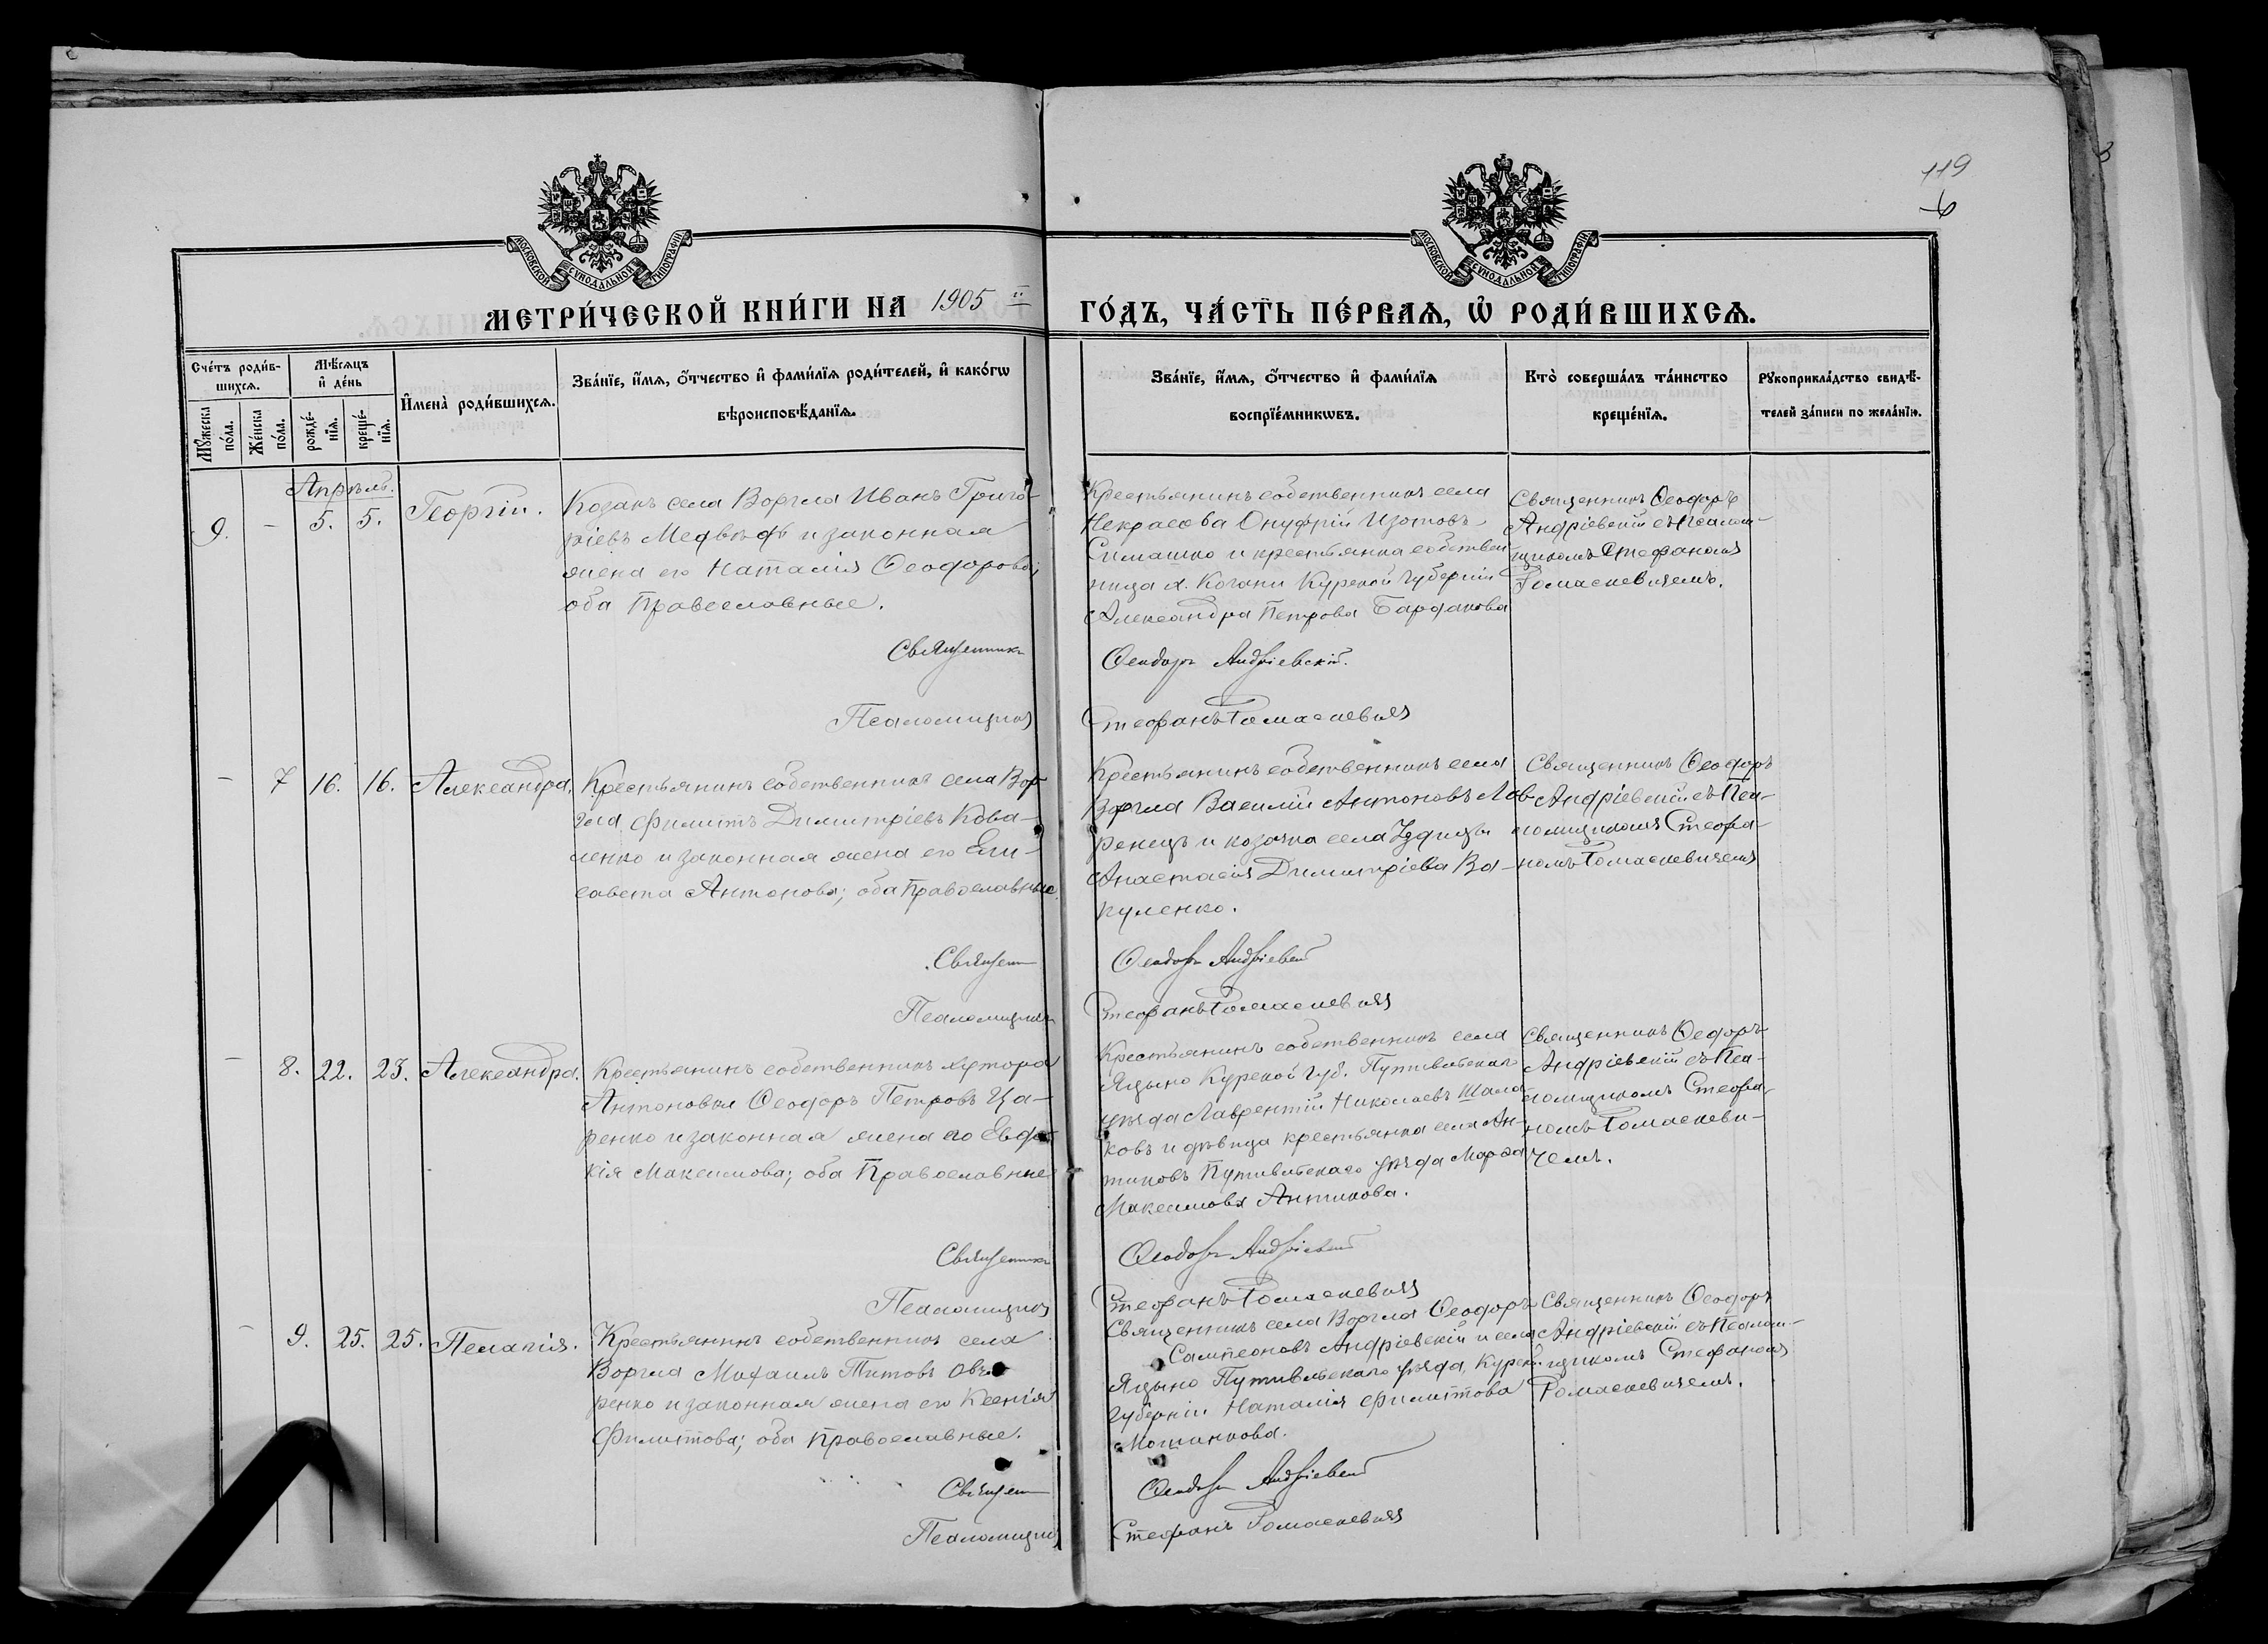 119
6
МОСКОВСКОЙ СУНОДАЛЬНОЙ ТИПОГРАФІИ
МОСКОВСКОЙ СУНОДАЛЬНОЙ ТИПОГРАФІИ
МЕТРИ́ЧЕСКОЙ КНИ́ГИ НА 1905
ГО́ДЪ, ЧА́СТЬ ПЕ́РВАѦ, Ѡ РОДИ́ВШИХСѦ.
Сче́тъ роди́в-
шихсѧ.
Мѣ́сѧцъ
и҆ де́нь
Мꙋ́жеска по́ла.
Же́нска по́ла.
рожде́-
нїѧ.
креще́-
нїѧ.
И҆мена̀ роди́вшихсѧ.
Зва́нїе, и҆́мѧ, ѻ҆́тчество и҆ фами́лїѧ роди́телей, и҆ како́гѡ
вѣроисповѣ́данїѧ.
Зва́нїе, и҆́мѧ, ѻ҆́тчество и҆ фами́лїѧ
воспрїе́мникѡвъ.
Кто̀ соверша́лъ та́инство
креще́нїѧ.
Рꙋкоприкла́дство свидѣ́-
телей за́писи по жела́нїю.
Апрѣль.
9. - 5. 5. Георгій.
Козакъ села Воргла Иванъ Григо-
ріевъ Медвѣдь и законная
жена его Наталія Ѳеодорова;
оба Православные.
Священникъ
Псаломщикъ
Крестьянинъ собственникъ села
Некрасова Онуфрій Изотовъ
Симашко и крестьянка собствен-
ница х. Кочани Курской губерніи
Александра Петрова Бардакова
Ѳеодоръ Андріевскій.
Стефанъ Ромаскевичъ
Священникъ Ѳеодоръ
Андріевскій съ Псалом-
щикомъ Стефаномъ
Ромаскевичемъ.
- 7 16. 16. Александра.
Крестьянинъ собственникъ села Вор-
гла Филиппъ Димитріевъ Кова-
ленко и законная жена его Ели-
савета Антонова; оба Православные.
Священ
Псаломщикъ
Крестьянинъ собственникъ села
Воргла Василій Антоновъ Лав-
ренецъ и козачка села
Анастасія Димитріева Ва-
куленко.
Ѳеодоръ Андріевскій
Стефанъ Ромаскевичъ
Священникъ Ѳеодоръ
Андріевскій съ Пса-
ломщикомъ Стефа-
номъ Ромаскевичемъ
- 8. 22. 23. Александра.
Крестьянинъ собственникъ хутора
Антоновки Ѳеодоръ Петровъ Ца-
ренко и законная жена его Евдо-
кія Максимова; оба Православные
Священникъ
Псаломщикъ
Крестьянинъ собственникъ села
Яцыно Курской губ. Путивльскаго
уѣзда Лаврентій Николаевъ Шала-
ковъ и дѣвица крестьянка села Ан-
тиковъ Путивльскаго уѣзда Марѳа
Максимова Антикова.
Ѳеодоръ Андріевскій
Стефанъ Ромаскевичъ
Священникъ Ѳеодоръ
Андріевскій съ Пса-
ломщикомъ Стефа-
номъ Ромаскеви-
чемъ.
- 9. 25. 25. Пелагія.
Крестьянинъ собственникъ села
Воргла Михаилъ Титовъ
ренко и законная жена его Ксенія
Филиппова; оба Православные.
Священ
Псаломщикъ
Священникъ села Воргла Ѳеодоръ
Сампсоновъ Андріевскій и села
Яцыно Путивльскаго уѣзда, Курской
губерніи Наталія Филиппова
Мошинкова.
Ѳеодоръ Андріевскій
Стефанъ Ромаскевичъ
Священникъ Ѳеодоръ
Андріевскій съ Псалом-
щикомъ Стефаномъ
Ромаскевичемъ.